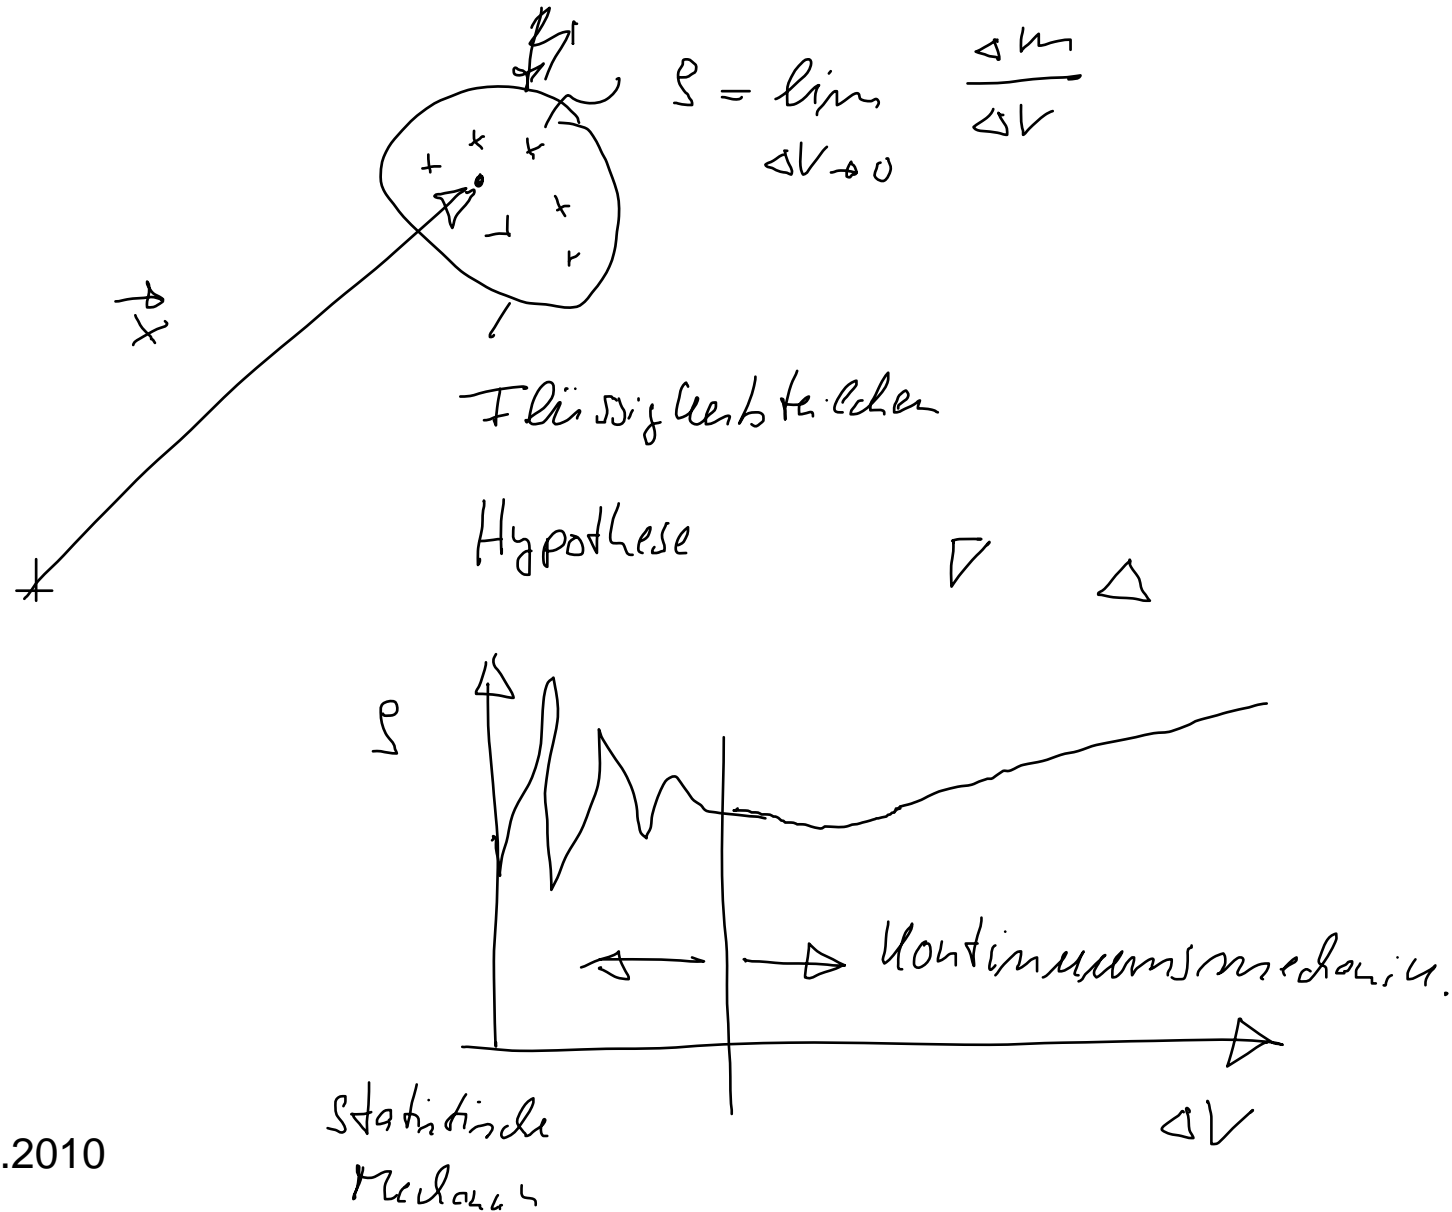 ρ = lim Δm / ΔV
ΔV→0
x⃗
Flüssigkeitsteilchen
Hypothese
ρ
Kontinuumsmechanik.
ΔV
statistische
Mechanik
.2010